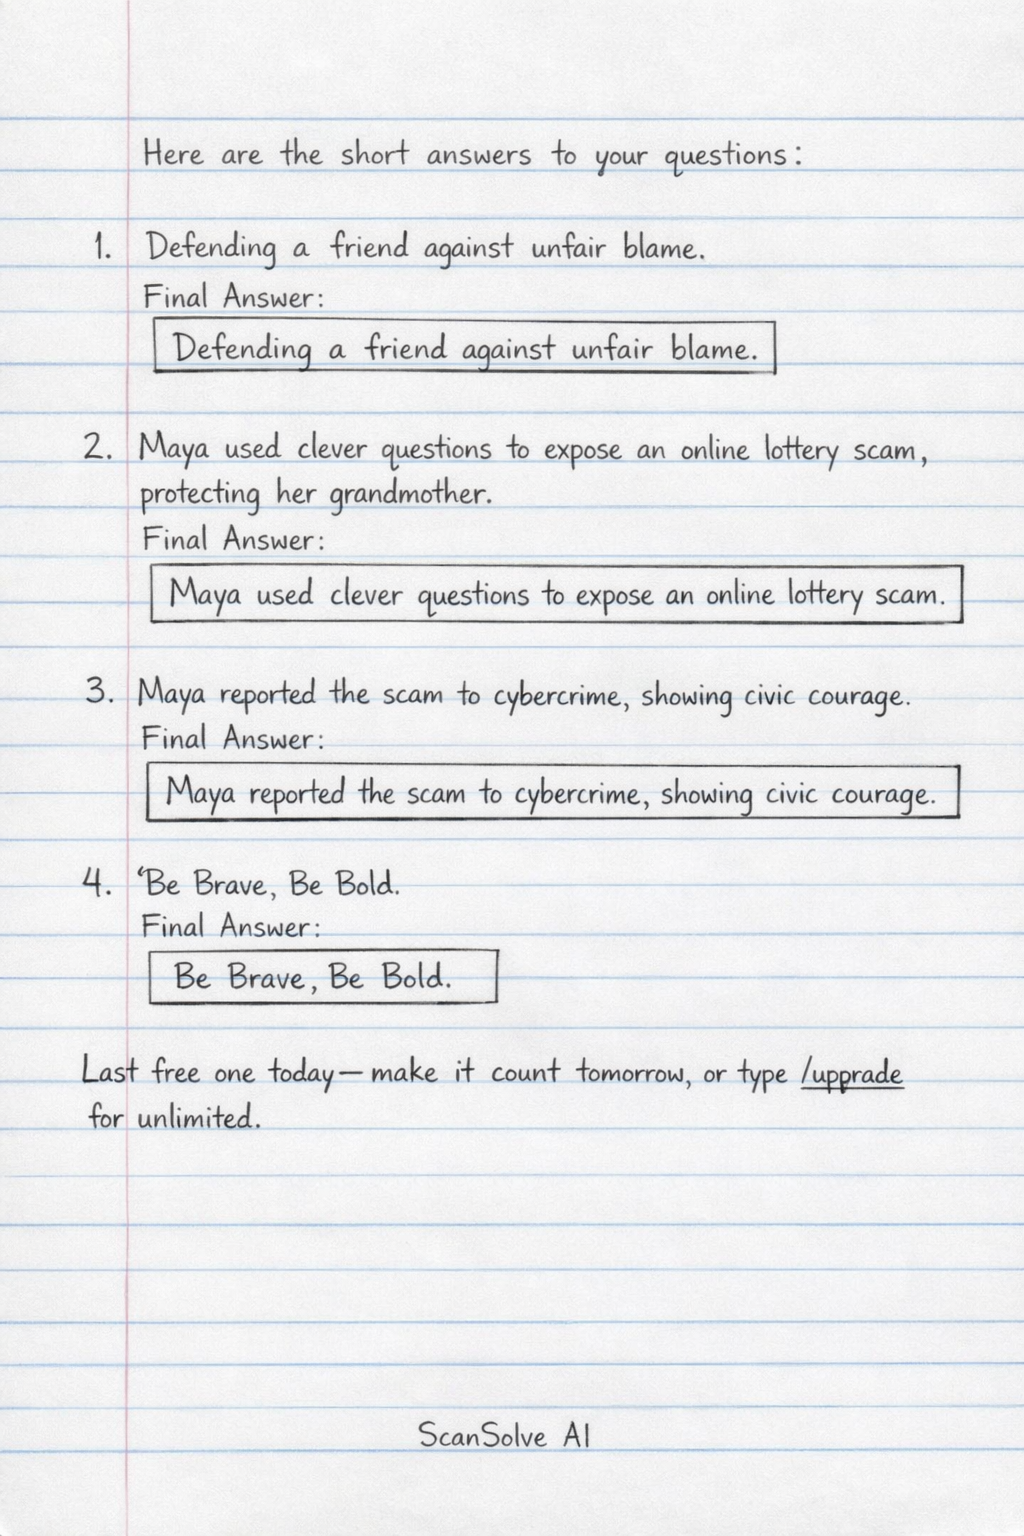 Here are the short answers to your questions:
1. Defending a friend against unfair blame.
Final Answer:
Defending a friend against unfair blame.
2. Maya used clever questions to expose an online lottery scam,
protecting her grandmother.
Final Answer:
Maya used clever questions to expose an online lottery scam.
3. Maya reported the scam to cybercrime, showing civic courage.
Final Answer:
Maya reported the scam to cybercrime, showing civic courage.
4. ‘Be Brave, Be Bold.
Final Answer:
Be Brave, Be Bold.
Last free one today—make it count tomorrow, or type /upprade
for unlimited.
ScanSolve AI